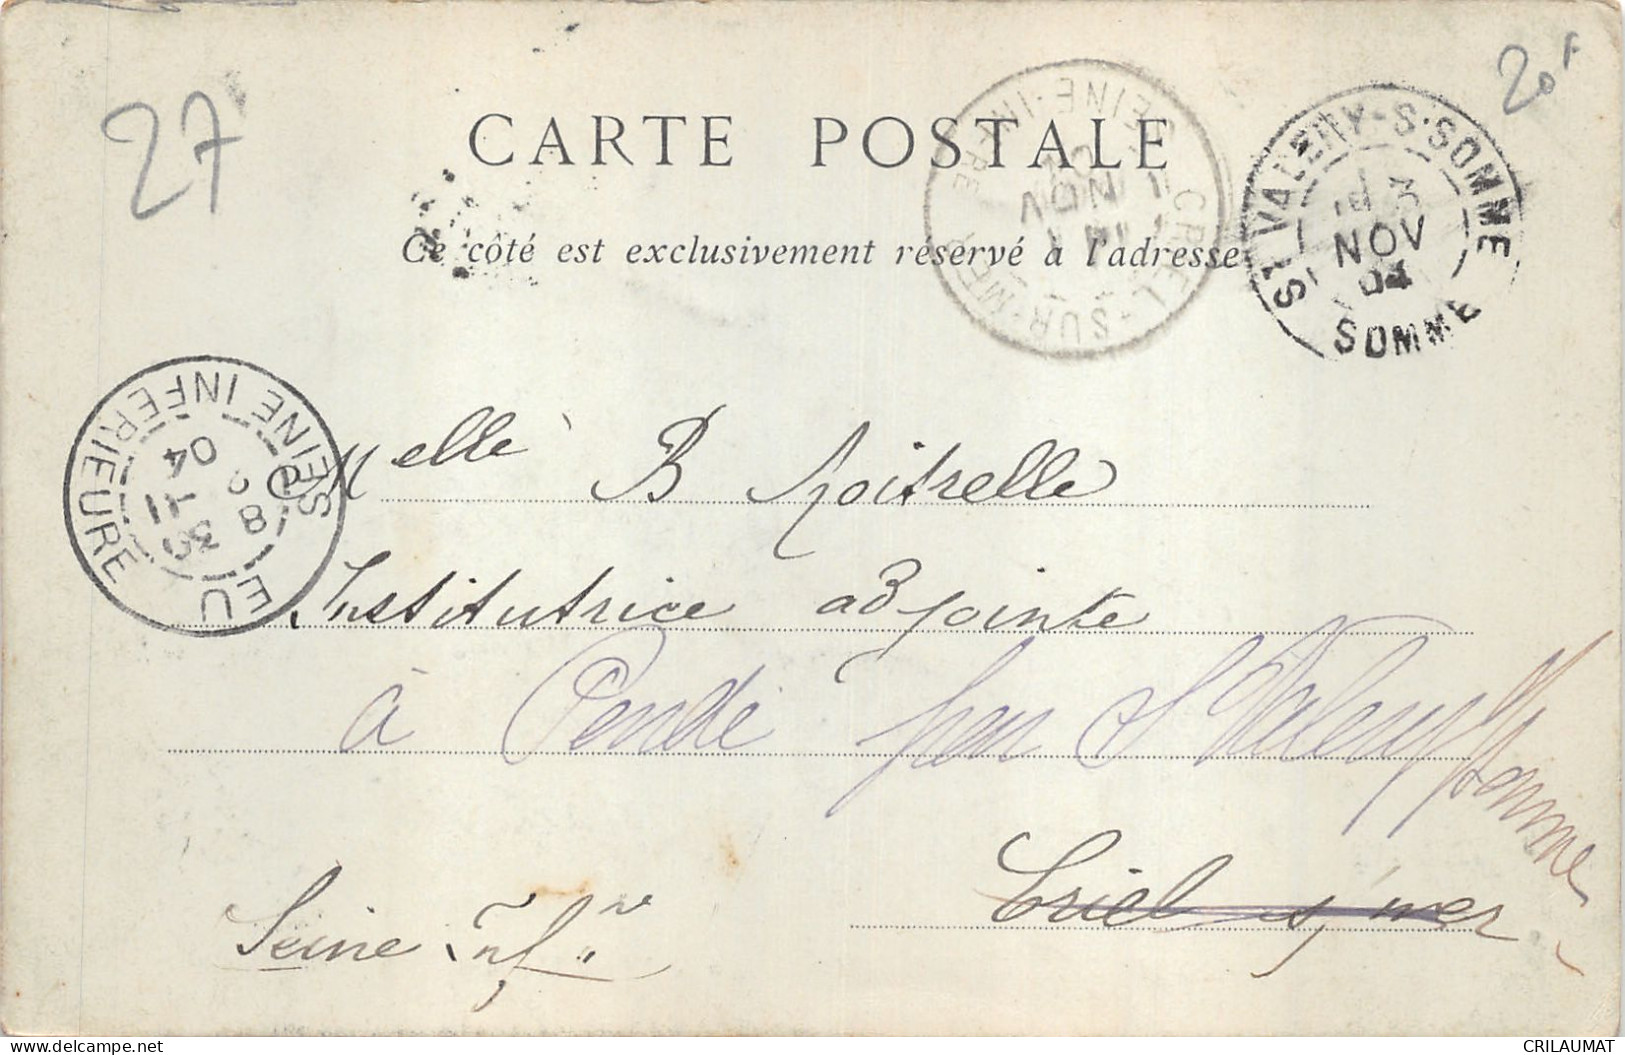 27
20F
CARTE POSTALE
Ce côté est exclusivement réservé à l'adresse
CRIEL-SUR-MER
SEINE-INFRE
1 NOV 04
ST VALERY-S-SOMME
3
NOV
04
SOMME
EU
SEINE INFERIEURE
8
31
04
Melle B Roitrelle
Institutrice adjointe
à Pendé par St Valery s/Somme
Criel s/ mer
Seine Infre
CRILAUMAT